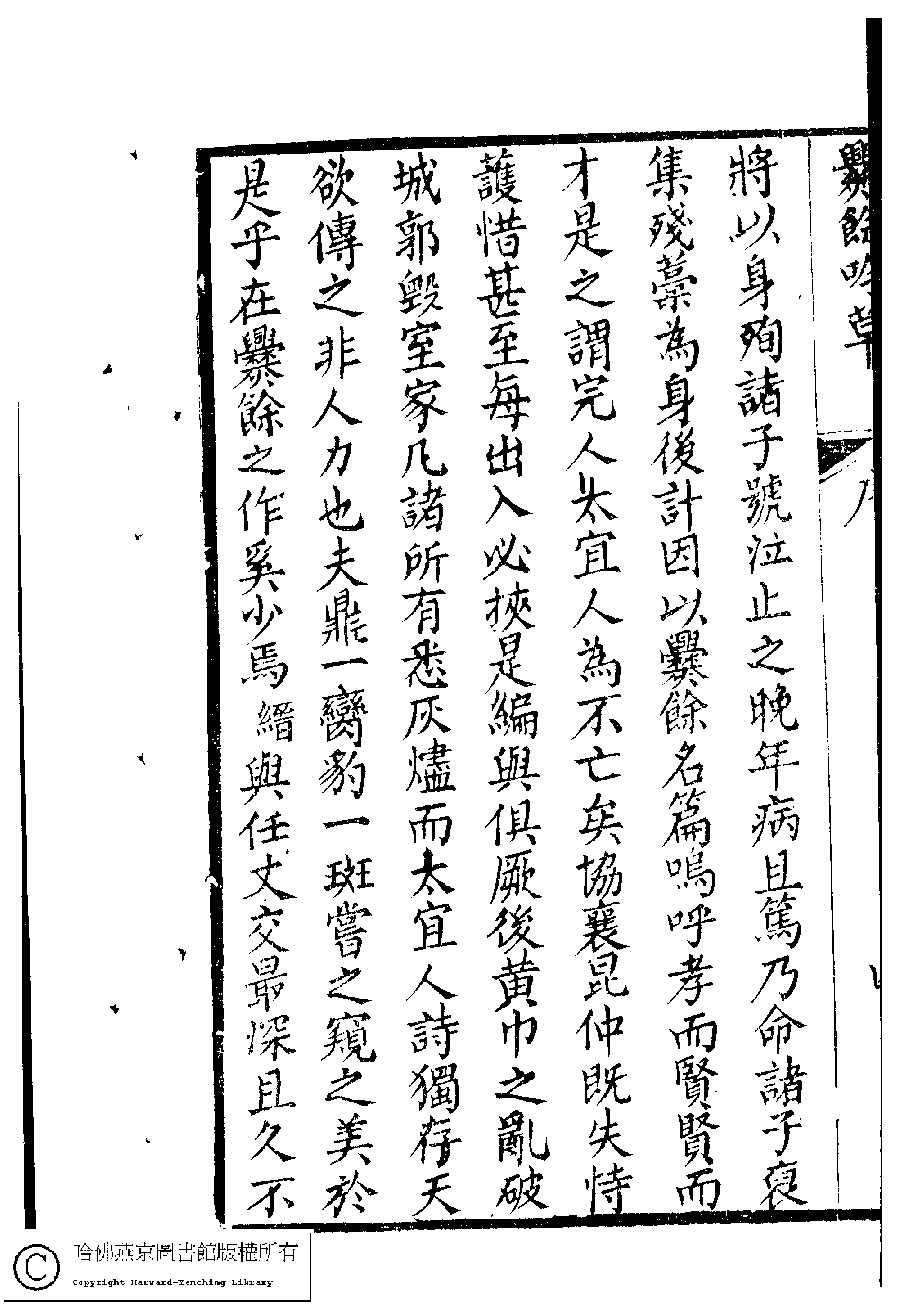 爨餘吟草
將以身殉諸子號泣止之晚年病且篤乃命諸子裒
集殘藁為身後計因以爨餘名篇嗚呼孝而賢賢而
才是之謂完人太宜人為不亡矣協襄昆仲既失恃
護惜甚至每出入必挾是編與俱厥後黄巾之亂破
城郭毀室家凡諸所有悉灰燼而太宜人詩獨存天
欲傳之非人力也夫鼎一臠豹一斑嘗之窺之美於
是乎在爨餘之作奚少焉縉與任丈交最深且久不
哈佛燕京圖書館版權所有
Copyright Harvard-Yenching Library